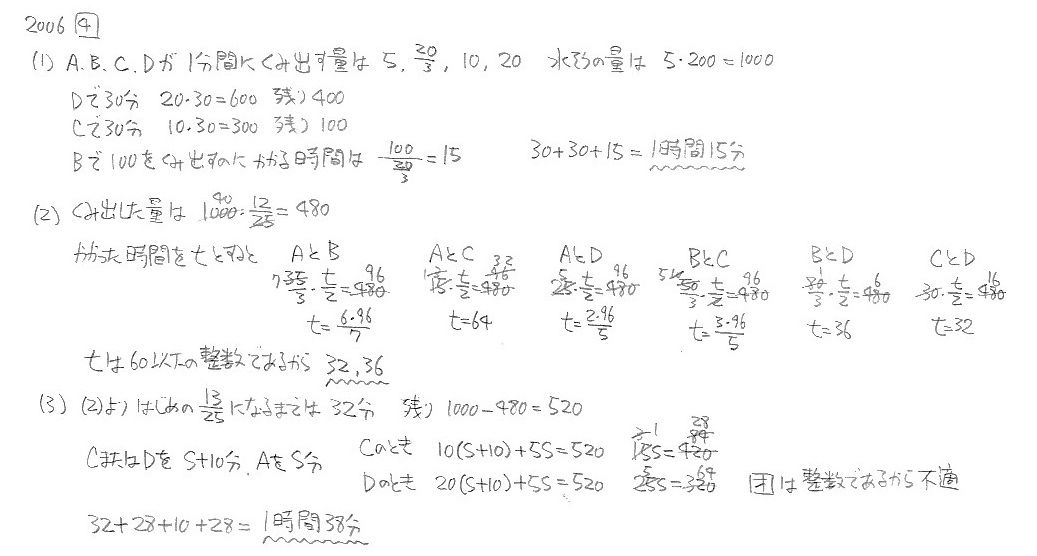 2006 4
(1) A、B、C、Dが1分間にくみ出す量は 5, 20/3, 10, 20 水そうの量は 5・200=1000
Dで30分 20・30=600 残り400
Cで30分 10・30=300 残り100
Bで100をくみ出すのにかかる時間は 100/(20/3)=15 30+30+15=1時間15分
(2) くみ出した量は 1000・12/25=480 40
かかった時間をtとすると AとB AとC AとD BとC BとD CとD
7 35/3・t/2=480 96 15・t/2=480 96 32 5 25・t/2=480 96 5 50/3・t/2=480 96 1 80/3・t/2=480 6 30・t/2=480 16
t=6・96/7 t=64 t=2・96/5 t=3・96/5 t=36 t=32
tは60以下の整数であるから 32, 36
(3) (2)よりはじめの13/25になるまでは32分 残り 1000-480=520
CまたはDをS+10分、AをS分 Cのとき 10(S+10)+5S=520 15S=420 3 1 84 28
Dのとき 20(S+10)+5S=520 25S=320 5 64 は整数であるから不適
32+28+10+28=1時間38分